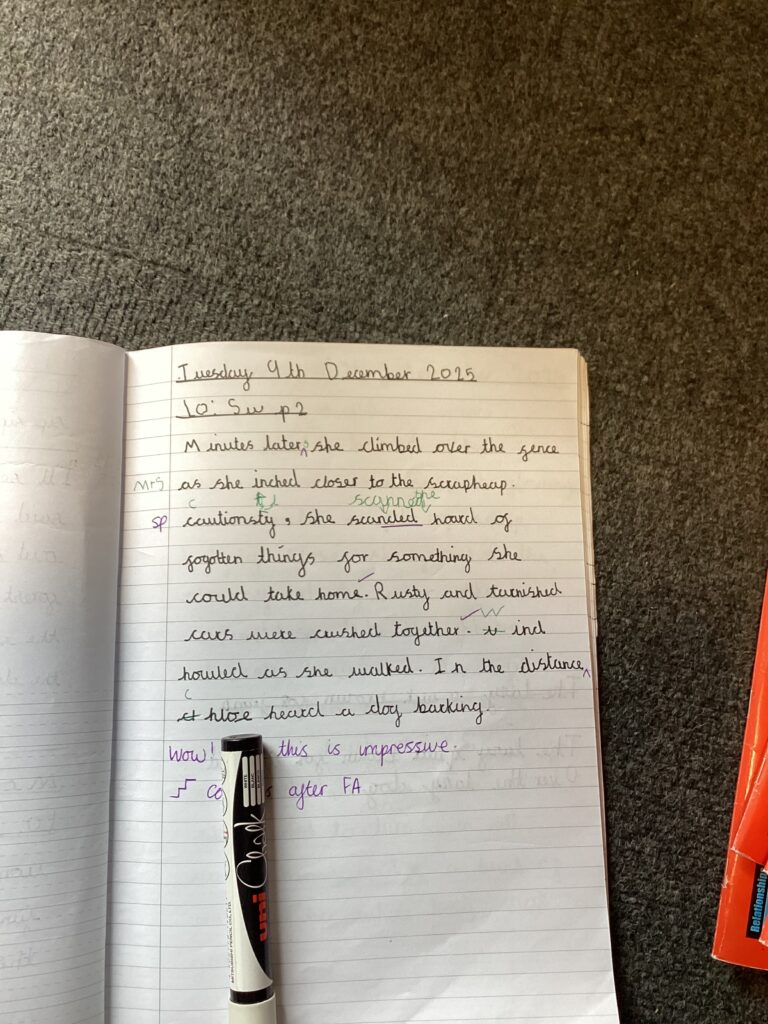 Tuesday 9th December 2025
LO: SW p2
Minutes later, she climbed over the fence
Mrs as she inched closer to the scrapheap.
c tl scanned the
sp cautionsty, she scanded hoard of
fogotten things for something she
could take home. Rusty and turnished
cars were crushed together. w W ind
howled as she walked. In the distance,
C
c hloe heard a dog barking.
Wow! this is impressive.
after FA
uni Chalk
WHITE
BLANC
MITSUBISHI PENCIL CO.,LTD
Relationship